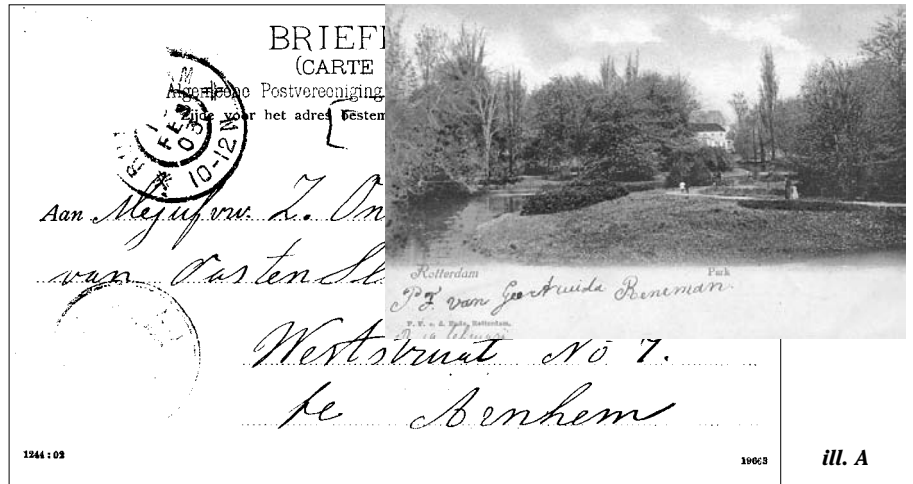 BRIEF
(CARTE
Algemeene Postvereeniging
Zijde voor het adres bestem
FEB
03
10-12 N
Aan Mejufvrw. Z. On
van Oasten Sl
Weststraat No 7.
te Arnhem
1244 : 02
19663
Rotterdam
Park
P.F. van Geertruida Reneman.
ill. A